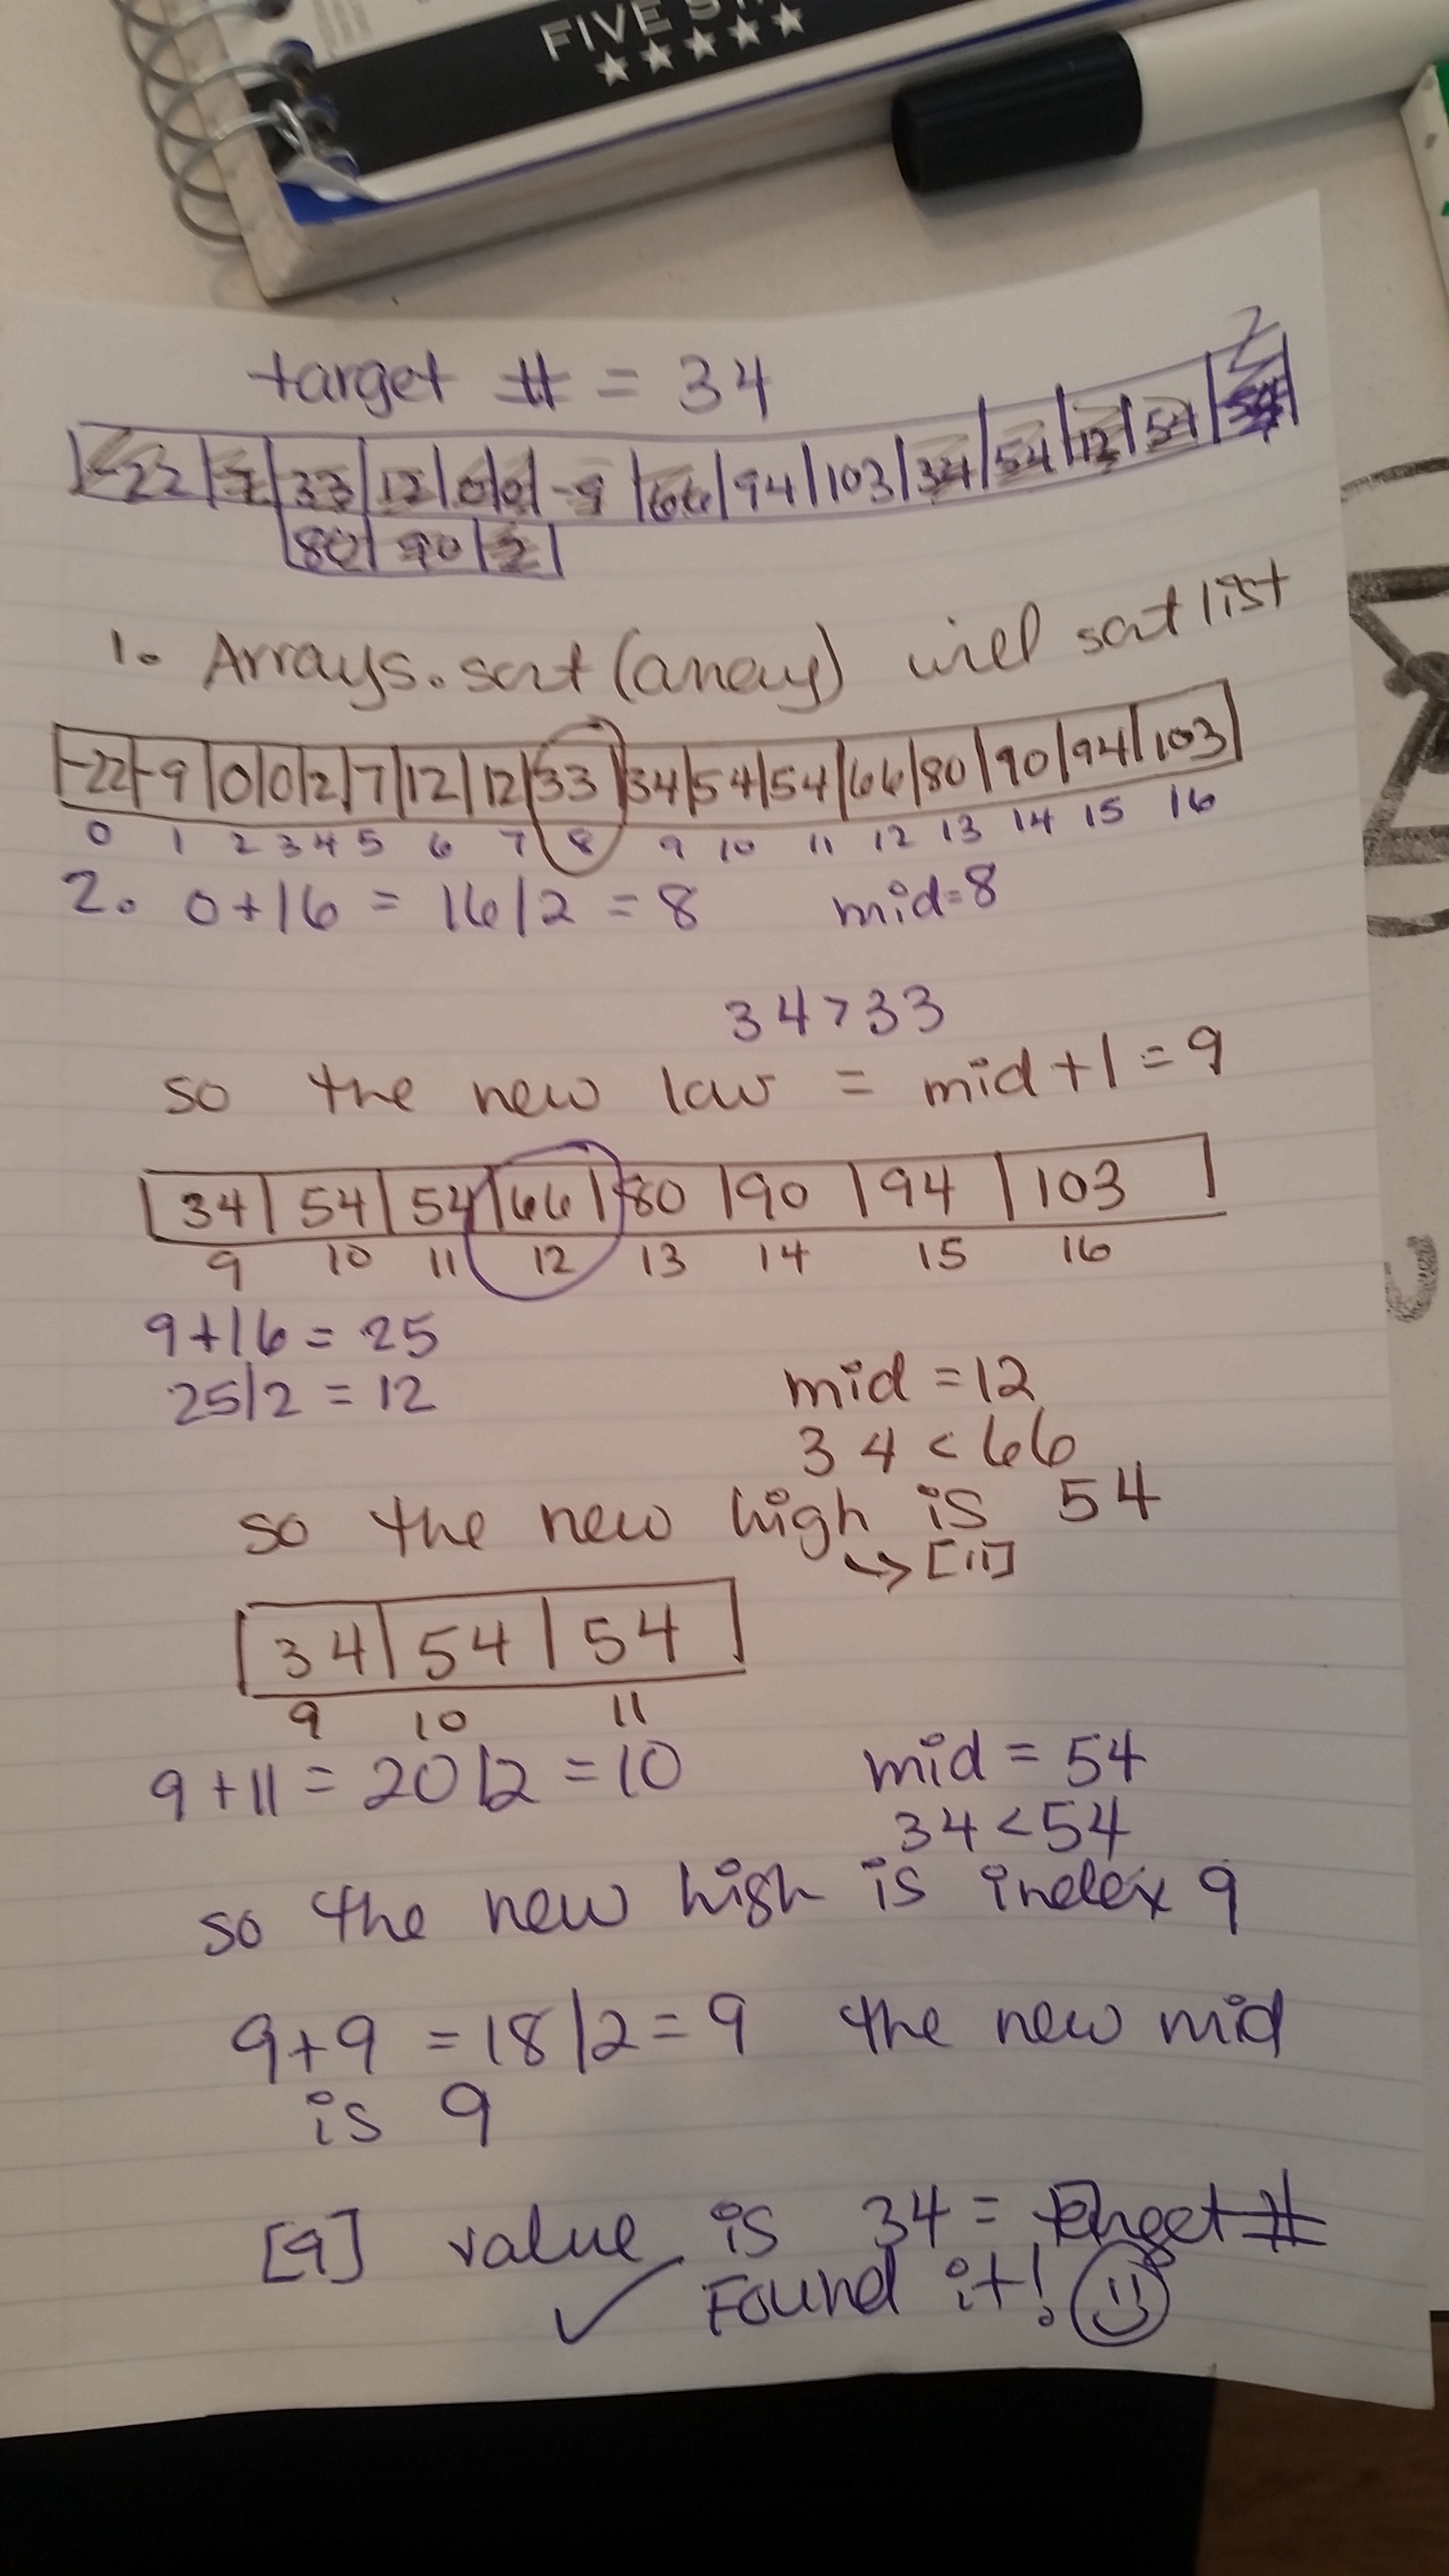 FIVE
target # = 34
2
-22 7 33 12 0 0 -9 66 94 103 34 54 12 54
80 90 2
1. Arrays.sort(array) will sort list
-22 -9 0 0 2 7 12 12 33 34 54 54 66 80 90 94 103
0 1 2 3 4 5 6 7 8 9 10 11 12 13 14 15 16
2. 0+16 = 16/2 = 8 mid=8
34>33
so the new low = mid+1=9
34 54 54 66 80 90 94 103
9 10 11 12 13 14 15 16
9+16=25
25/2=12
mid=12
34<66
so the new high is 54
↪[11]
34 54 54
9 10 11
9+11=20/2=10 mid=54
34<54
so the new high is index 9
9+9=18/2=9 the new mid
is 9
[9] value is 34=target#
✓ Found it!